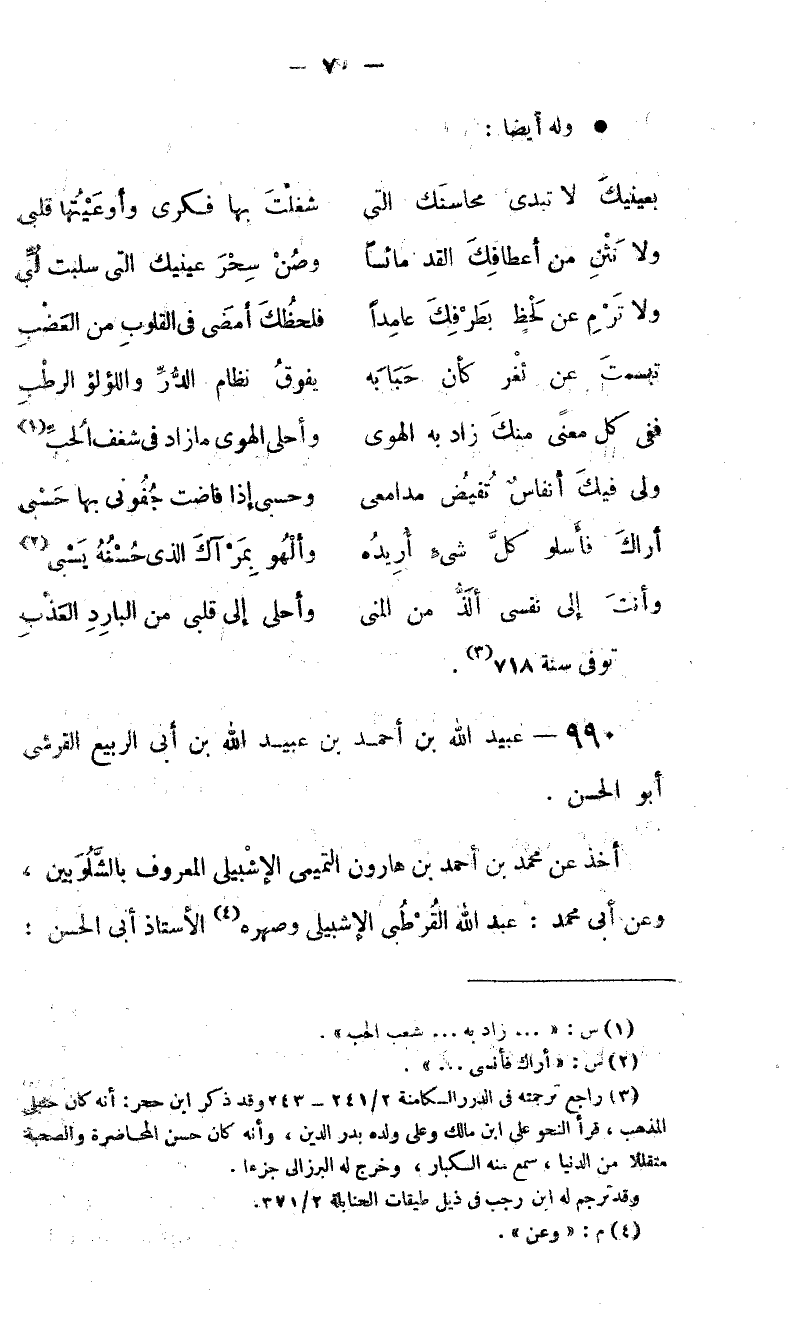 — ٧ —
● وله أيضا :
بعينيكَ لا تبدى محاسنَك التى شغلْتَ بها فكرى وأوعَيْتُها قلبى
ولا تَثْنِ من أعطافِكَ القد مائساً وصُنْ سِحْرَ عينيك التى سلبت لُبِّى
ولا تَرْمِ عن لَحْظٍ بطَرْفِكَ عامِداً فلحظُكَ أمضَى فى القلوبِ من العَضْبِ
تبسمتَ عن ثغر كأن حَبَابَه يفوقُ نظام الدُّرِّ واللؤلؤ الرطْبِ
ففى كل معنًى منكَ زاد به الهوى وأحلى الهوى مازاد فى شغف الحبِّ(١)
ولى فيكَ أنفاسٌ تُفيضُ مدامعى وحسبى إذا فاضت جُفُونى بها حَسْبى
أراكَ فأسلو كلَّ شىءٍ أُريدُه وألْهُو بِمَرْآكَ الذى حُسْنُهُ يَسْبى(٢)
وأنتَ إلى نفسى ألَذُّ من المنى وأحلى إلى قلبى من البارِدِ العَذْبِ
توفى سنة ٧١٨(٣) .
٩٩٠ — عبيد الله بن أحمد بن عبيد الله بن أبى الربيع القرشى
أبو الحسن .
أخذ عن محمد بن أحمد بن هارون التميمى الإشْبيلى المعروف بالشَّلُوَبين ،
وعن أبى محمد : عبد الله القُرْطُبى الإشبيلى وصهره(٤) الأستاذ أبى الحسن :
(١) س : « ... زاد به ... شعب الحب » .
(٢) س : « أراك فأنسى ... » .
(٣) راجع ترجمته فى الدرر الكامنة ٢/٢٤١ — ٢٤٣ وقد ذكر ابن حجر : أنه كان حنبلى
المذهب ، قرأ النحو على ابن مالك وعلى ولده بدر الدين ، وأنه كان حسن المحاضرة والصحبة
متقللا من الدنيا ، سمع منه الكبار ، وخرج له البرزالى جزءا .
وقد ترجم له ابن رجب فى ذيل طبقات الحنابلة ٢/٣٧١.
(٤) م : « وعن » .